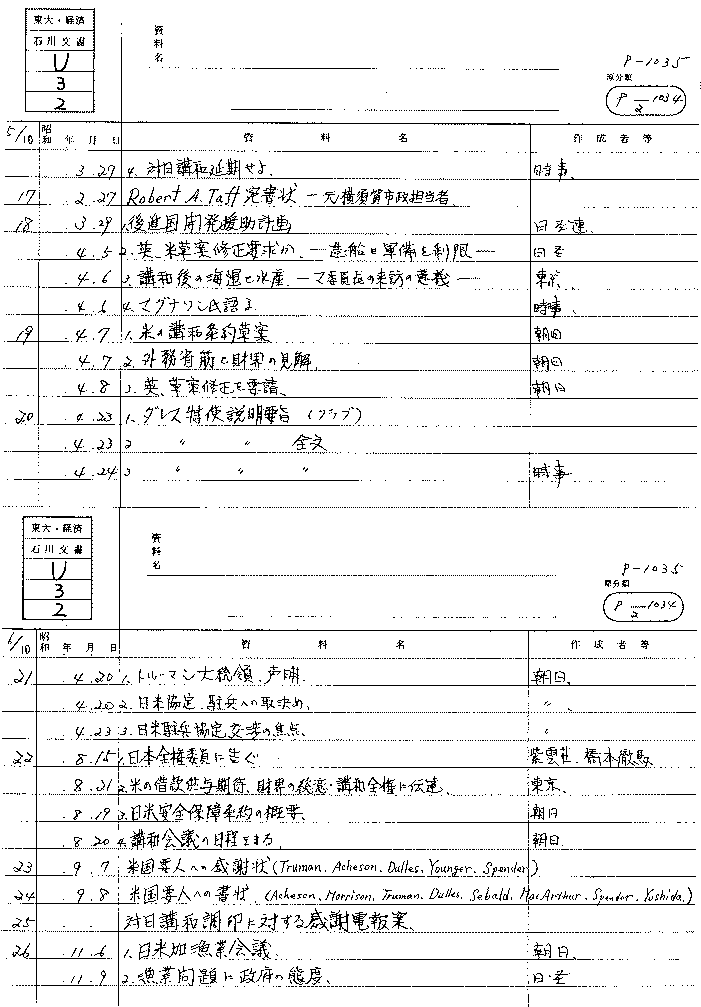 東大・経済
石川文書
U
3
2
資料名
P-1035
原分類
P 2-1034
5/10 昭和 年 月 日 資料名 作成者等
3.27 4. 対日講和延期せよ、 時事、
17 2.27 Robert A. Taft宛書状 ー元横須賀市政担当者
18 3.29 1.後進国開発援助計画 日・産連、
4.5 2.英、米草案修正要求か、 ー造船と軍備を制限ー 日・産
4.6 3.講和後の海運と水産、ーマ委員長の来訪の意義ー 東京、
4.6 4.マグナソン氏語る 時事、
19 4.7 1.米の講和条約草案 朝日
4.7 2.外務省筋と財界の見解、 朝日
4.8 3.英、草案修正を要請、 朝日
20 4.23 1.ダレス特使説明要旨 (クラブ)
4.23 2 〃 〃 全文
4.24 3 〃 〃 〃 時事
東大・経済
石川文書
U
3
2
資料名
P-1035
原分類
P 2-1034
6/10 昭和 年 月 日 資料名 作成者等
21 4.20 1.トルーマン大統領、声明、 朝日、
4.20 2.日米協定、駐兵への取決め、 〃、
4.23 3.日米駐兵協定交渉の焦点、 〃
22 8.15 1.日本全権委員に告ぐ 紫雲荘、橋本徹馬
8.21 2.米の借款供与期待、財界の総意・講和全権に伝達、 東京、
8.19 3.日米安全保障条約の概要、 朝日
8.20 4.講和会議の日程きまる、 朝日、
23 9.7 米国要人への感謝状(Truman、Acheson、Dulles、Younger、Spender)
24 9.8 米国要人への書状、(Acheson、Morrison、Truman、Dulles、Sebald、MacArthur、Spender、Yoshida、)
25 . 対日講和調印に対する感謝電報案、
26 11.6 1.日米加漁業会議、 朝日、
11.9 2.漁業問題に政府の態度、 日・産